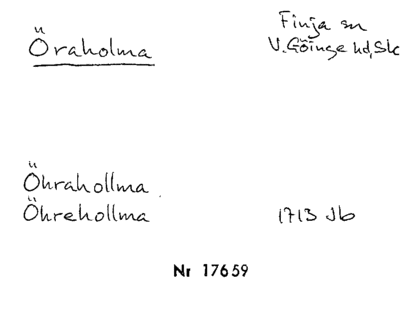 Öraholma
Finja sn
V. Göinge hd, Sk
Öhrahollma
Öhrehollma 1713 Jb
Nr 17659